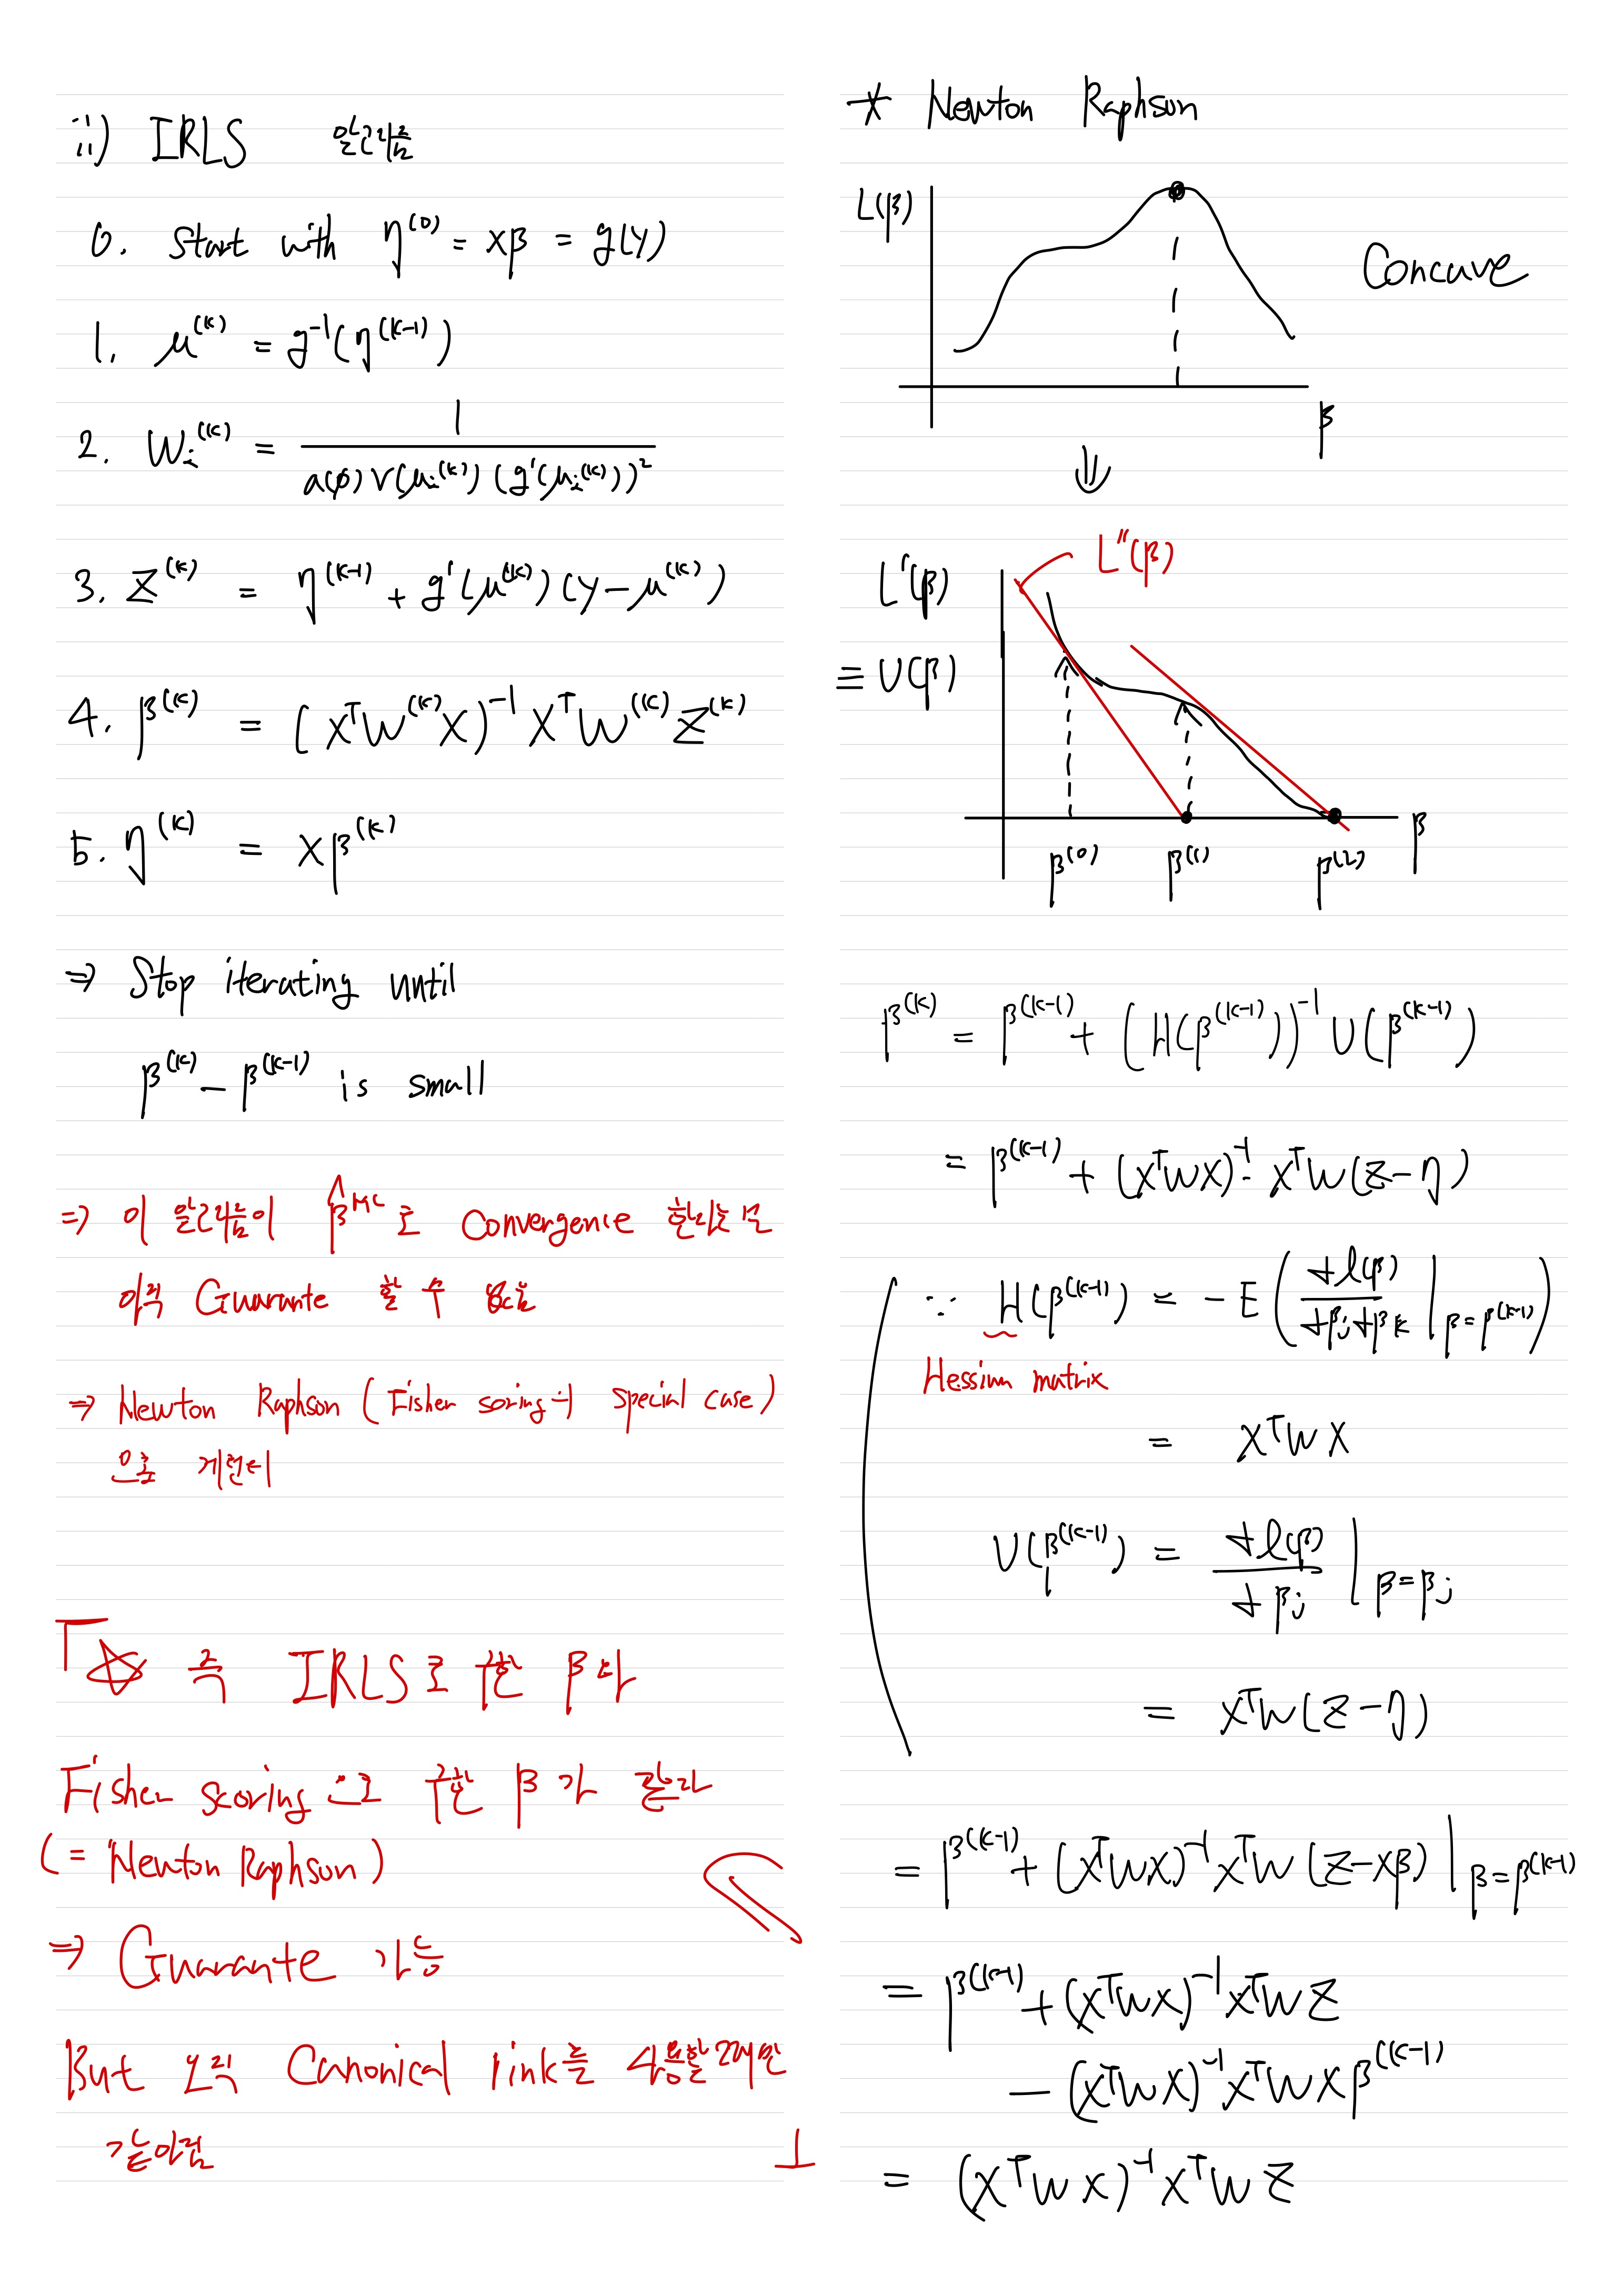 ii) IRLS 알고리즘
0. Start with η^(0) = xβ = g(y)
1. μ^(k) = g^-1(η^(k-1))
2. W_i^(k) = 1 / a(φ) V(μ_i^(k)) (g'(μ_i^(k)))^2
3. Z^(k) = η^(k-1) + g'(μ^(k)) (y - μ^(k))
4. β^(k) = (X^T W^(k) X)^-1 X^T W^(k) Z^(k)
5. η^(k) = Xβ^(k)
⇒ Stop iterating until
β^(k) - β^(k-1) is small
⇒ 이 알고리즘이 β̂^ML로 Convergence 한다는걸
아직 Guarante 할 수 없음
⇒ Newton Raphson (Fisher soring의 special case)
으로
☆ 즉 IRLS로 구한 β 와
Fisher scoring 으로 구한 β 가 같다
(= Newton Raphson)
⇒ Guarante 가능
But 오직 Canonical link를 사용할때만
같아짐
* Newton Raphson
L(β)
Concave
β
⇓
L''(β)
L'(β)
≡ U(β)
β^(0) β^(1) β^(2) β
β^(k) = β^(k-1) + (H(β^(k-1)))^-1 U(β^(k-1))
= β^(k-1) + (X^T W X)^-1 · X^T W (Z - η)
∵ H(β^(k-1)) = - E(∂l(β) / ∂β_j ∂β_k |_β=β^(k-1))
Hessian matrix
= X^T W X
U(β^(k-1)) = ∂l(β) / ∂β_j |_β=β_j
= X^T W (Z - η)
= β^(k-1) + (X^T W X)^-1 X^T W (Z - Xβ) |_β=β^(k-1)
= β^(k-1) + (X^T W X)^-1 X^T W Z
- (X^T W X)^-1 X^T W X β^(k-1)
= (X^T W X)^-1 X^T W Z